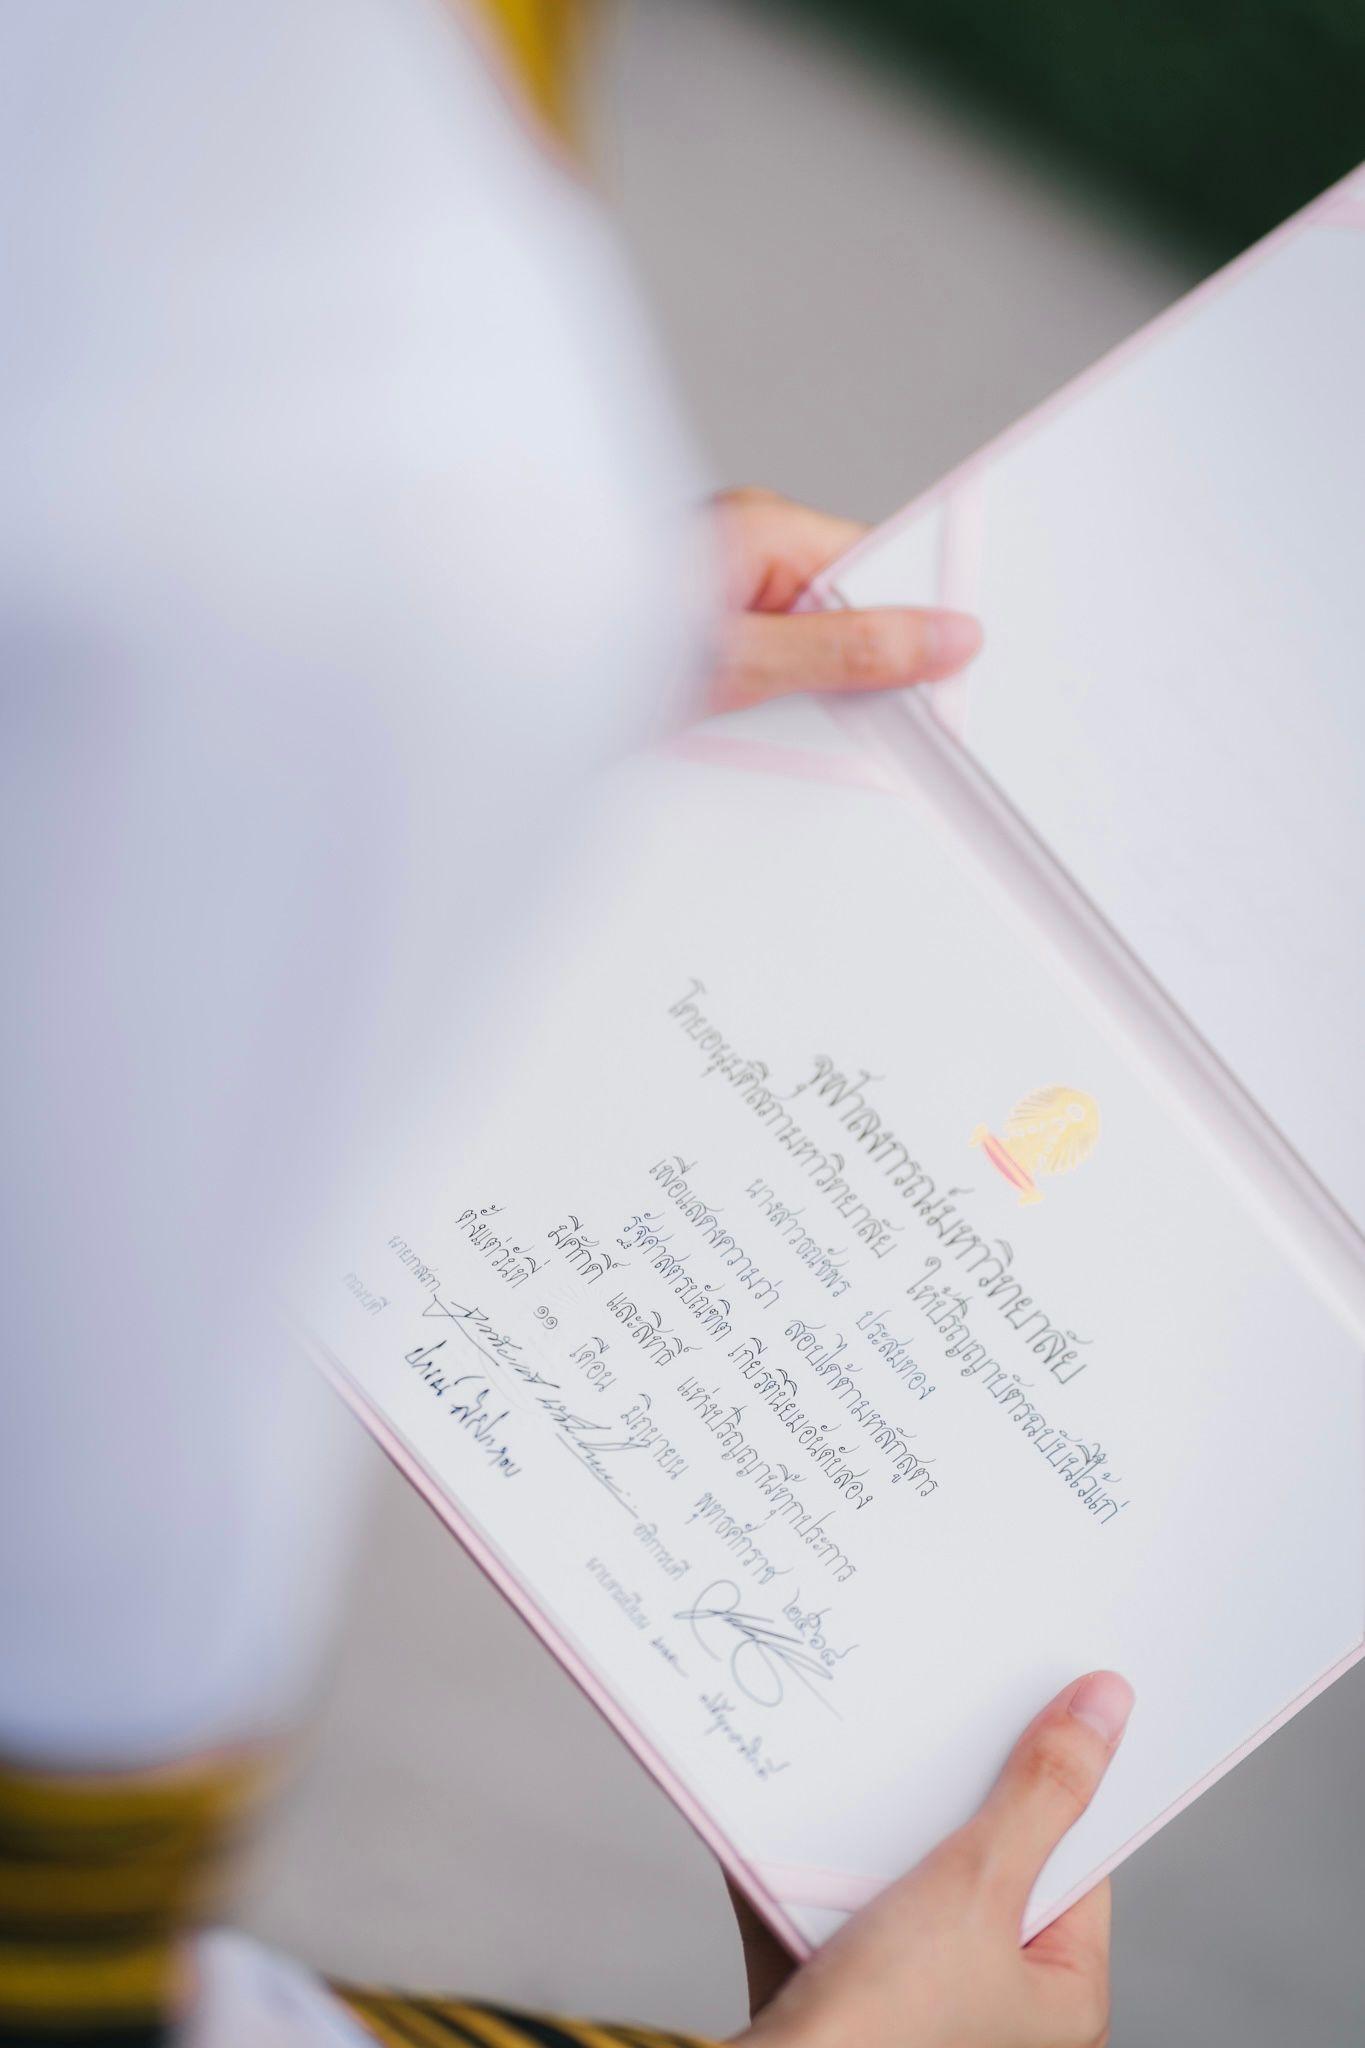 จุฬาลงกรณ์มหาวิทยาลัย
โดยอนุมัติสภามหาวิทยาลัย ให้ปริญญาบัตรฉบับนี้ไว้แก่
นางสาวธณัชพร ประสมทอง
เพื่อแสดงความว่า สอบได้ตามหลักสูตร
รัฐศาสตรบัณฑิต เกียรตินิยมอันดับสอง
มีศักดิ์ และสิทธิ์ แห่งปริญญานี้ทุกประการ
ตั้งแต่วันที่ ๑๑ เดือน มิถุนายน พุทธศักราช ๒๕๖๘
นายกสภา อธิการบดี
คณบดี นายทะเบียน